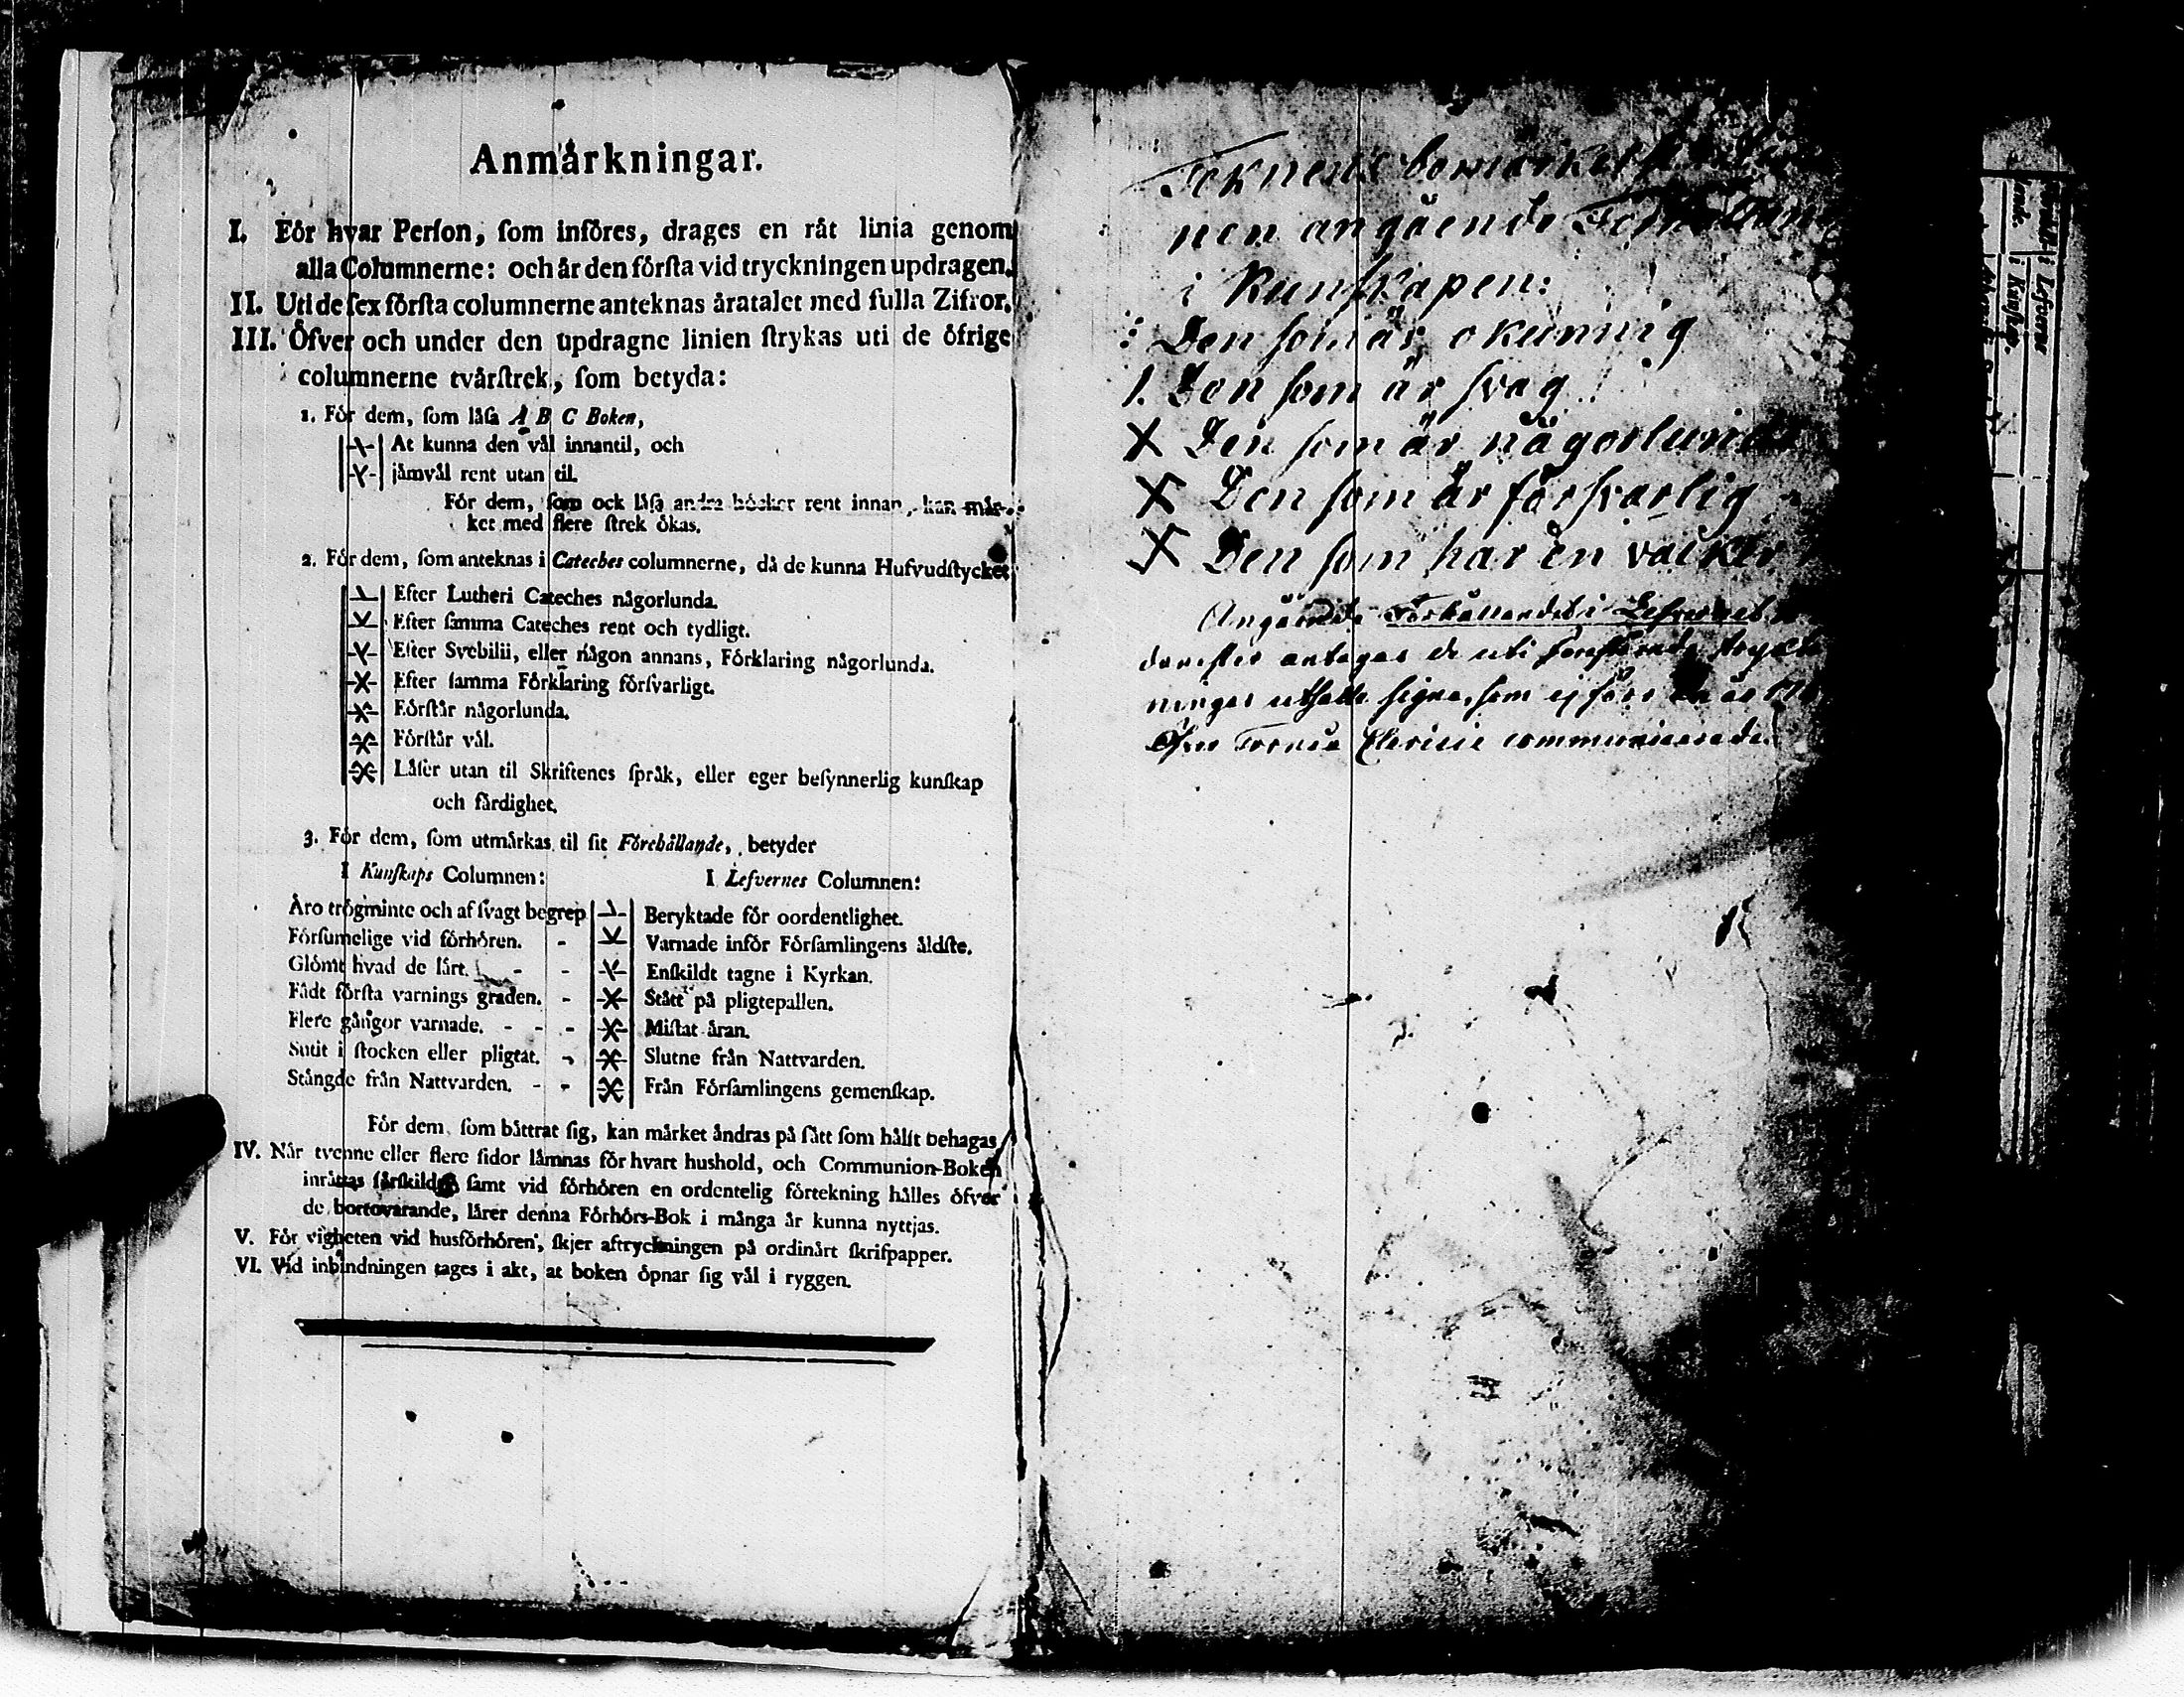 Anmårkningar.
I. Fór hvar Perſon, ſom infóres, drages en råt linia genom
alla Columnerne: och år den fórſta vid tryckningen updragen.
II. Uti de ſex fórſta columnerne anteknas åratalet med fulla Zifror.
III. Öfver och under den updragne linien ſtrykas uti de öfrige
columnerne tvårſtrek, ſom betyda:
1. Fór dem, ſom låſa A B C Boken,
At kunna den vål innantil, och
jåmvål rent utan til.
Fór dem, ſom ock låſa andra bócker rent innan, kan mår-
ket med flere ſtrek ókas.
2. Fór dem, ſom anteknas i Cateches columnerne, då de kunna Hufvudſtycket
Efter Lutheri Cateches någorlunda.
Efter ſamma Cateches rent och tydligt.
Efter Svebilii, eller någon annans, Fórklaring någorlunda.
Efter ſamma Fórklaring fórſvarligt.
Fórſtår någorlunda.
Fórſtår vål.
Låſer utan til Skriftenes ſpråk, eller eger beſynnerlig kunſkap
och fårdighet.
3. Fór dem, ſom utmårkas til ſit Fórehållande, betyder
I Kunſkaps Columnen: I Lefvernes Columnen:
Åro trógminte och af ſvagt begrep Beryktade fór oordentlighet.
Fórſumelige vid fórhóren. - Varnade infór Fórſamlingens åldſte.
Glómt hvad de lårt. - - Enſkildt tagne i Kyrkan.
Fådt fórſta varnings graden. - Stått på pligtepallen.
Flere gångor varnade. - - - Miſtat åran.
Sutit i ſtocken eller pligtat. - Slutne från Nattvarden.
Stångde från Nattvarden. - - Från Fórſamlingens gemenſkap.
Fór dem, ſom båttrat ſig, kan mårket åndras på ſått ſom hålſt behagas
IV. Når tvenne eller flere ſidor låmnas fór hvart hushold, och Communion-Boken
inråttas ſårſkild, ſamt vid fórhóren en ordentelig fórtekning hålles öfver
de bortovarande, lårer denna Fórhórs-Bok i många år kunna nyttjas.
V. Fór vigheten vid husfórhóren, ſkjer aftryckningen på ordinårt ſkrifpapper.
VI. Vid inbindningen tages i akt, at boken ópnar ſig vål i ryggen.
Teknens bemärkelse
nen angående
i Kunſkapen:
Den ſom är okunnig
1. Den ſom är ſvag
X Den ſom är någorlunda
X Den ſom är förſvarlig
X Den ſom har en vacker
Angående Förhållandet i Lefvernet
derefter antages de uti
ſom ej förr än år
Öfver Torneå communicerade.
i Lefverne
i Kunſkap.